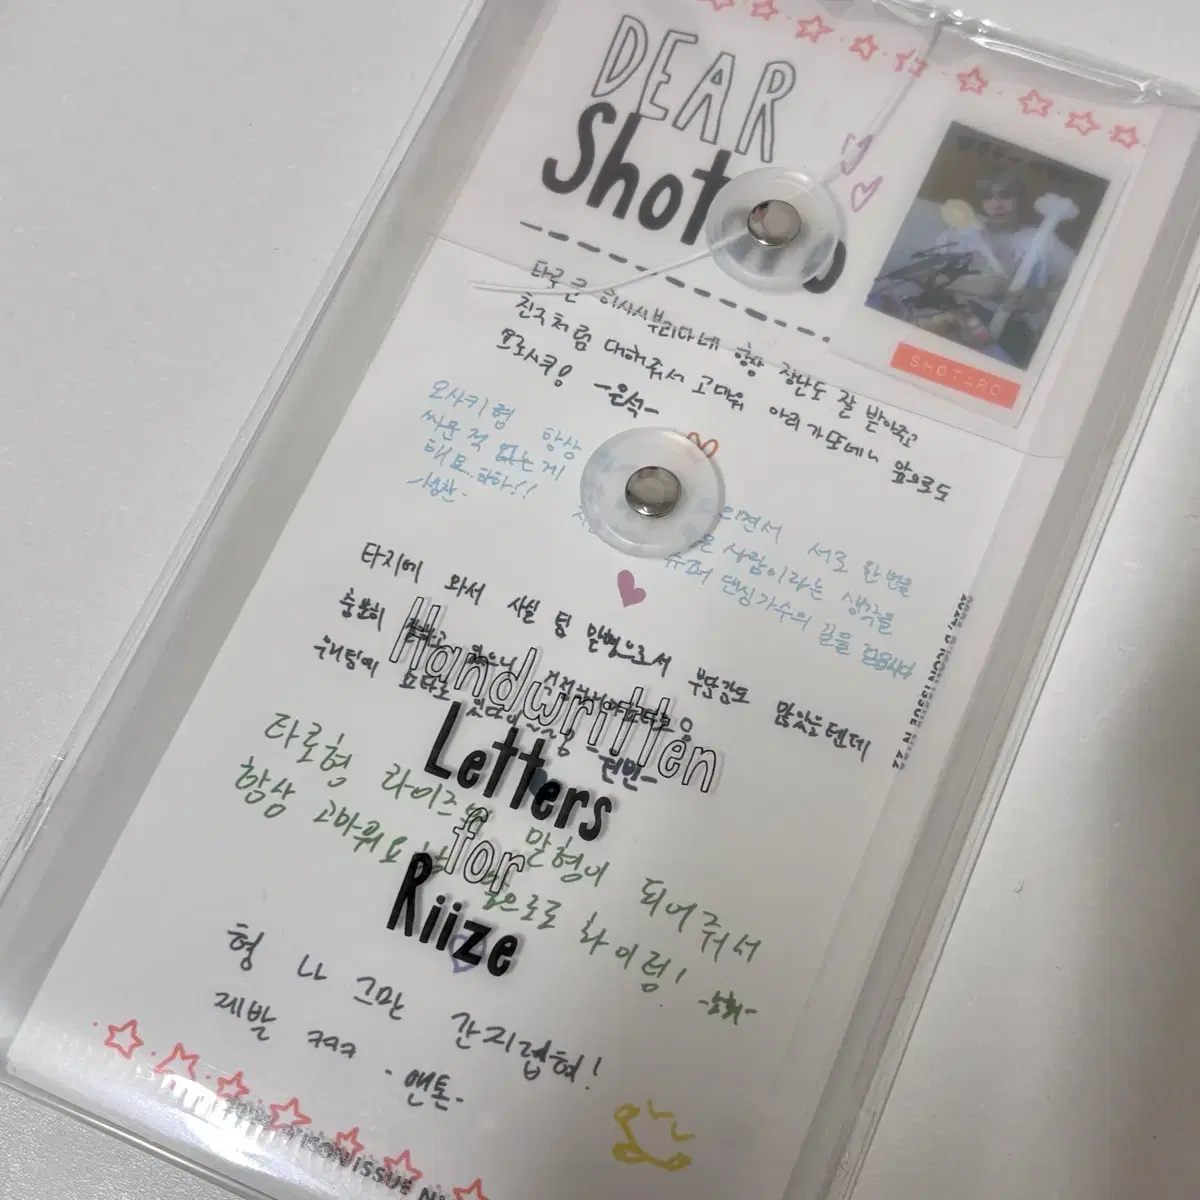 DEAR
SHOTARO
타로 큰 히사시부리다네 항상 장난도 잘 받아주고
친구처럼 대해줘서 고마워 아리가또네~ 앞으로도
요로시쿠! -은석-
오사키 형 항상 으면서 서로 한 번을
싸운 적 없는 게 은 사람이라는 생각을
해요 하하!! 슈퍼 댄싱가수의 길을 걸읍시다
성찬-
타지에 와서 사실 팀 맏형으로서 부담감도 많았을텐데
충분히
해팅에 쇼타로 있다 -원빈-
Handwritten
Letters
for
Riize
타로형 라이즈의 맏형이 되어줘서
항상 고마워요 앞으로도 화이팅!
형 나 그만 간지럽혀!
제발 ㅋㅋㅋ -앤톤-
D'ICON ISSUE N°22
D'ICON ISSUE N°